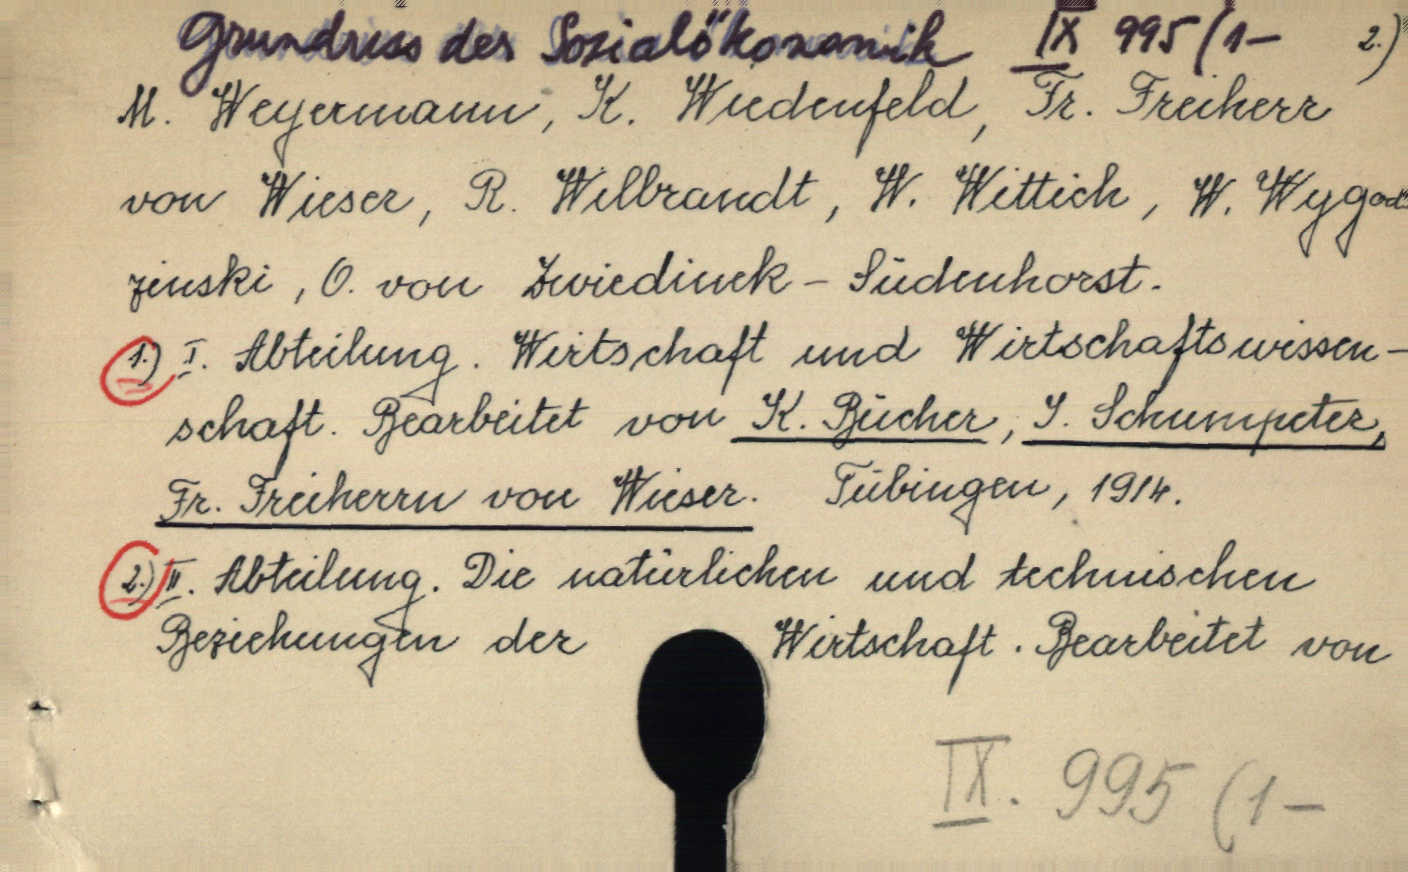 Grundriss der Sozialökonomik IX 995 (1- 2.)
M. Weyermann, K. Wiedenfeld, Fr. Freiherr
von Wieser, R. Wilbrandt, W. Wittich, W. Wygod-
zinski, O. von Zwiedineck-Südenhorst.
1.) I. Abteilung. Wirtschaft und Wirtschaftswissen-
schaft. Bearbeitet von K. Bücher, J. Schumpeter,
Fr. Freiherrn von Wieser. Tübingen, 1914.
2.) II. Abteilung. Die natürlichen und technischen
Beziehungen der Wirtschaft. Bearbeitet von
IX. 995 (1-